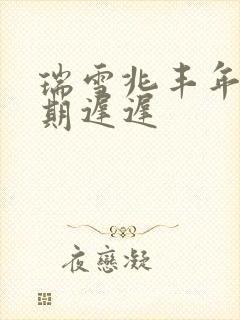 瑞雪兆丰年
期遲遲
夜戀凝